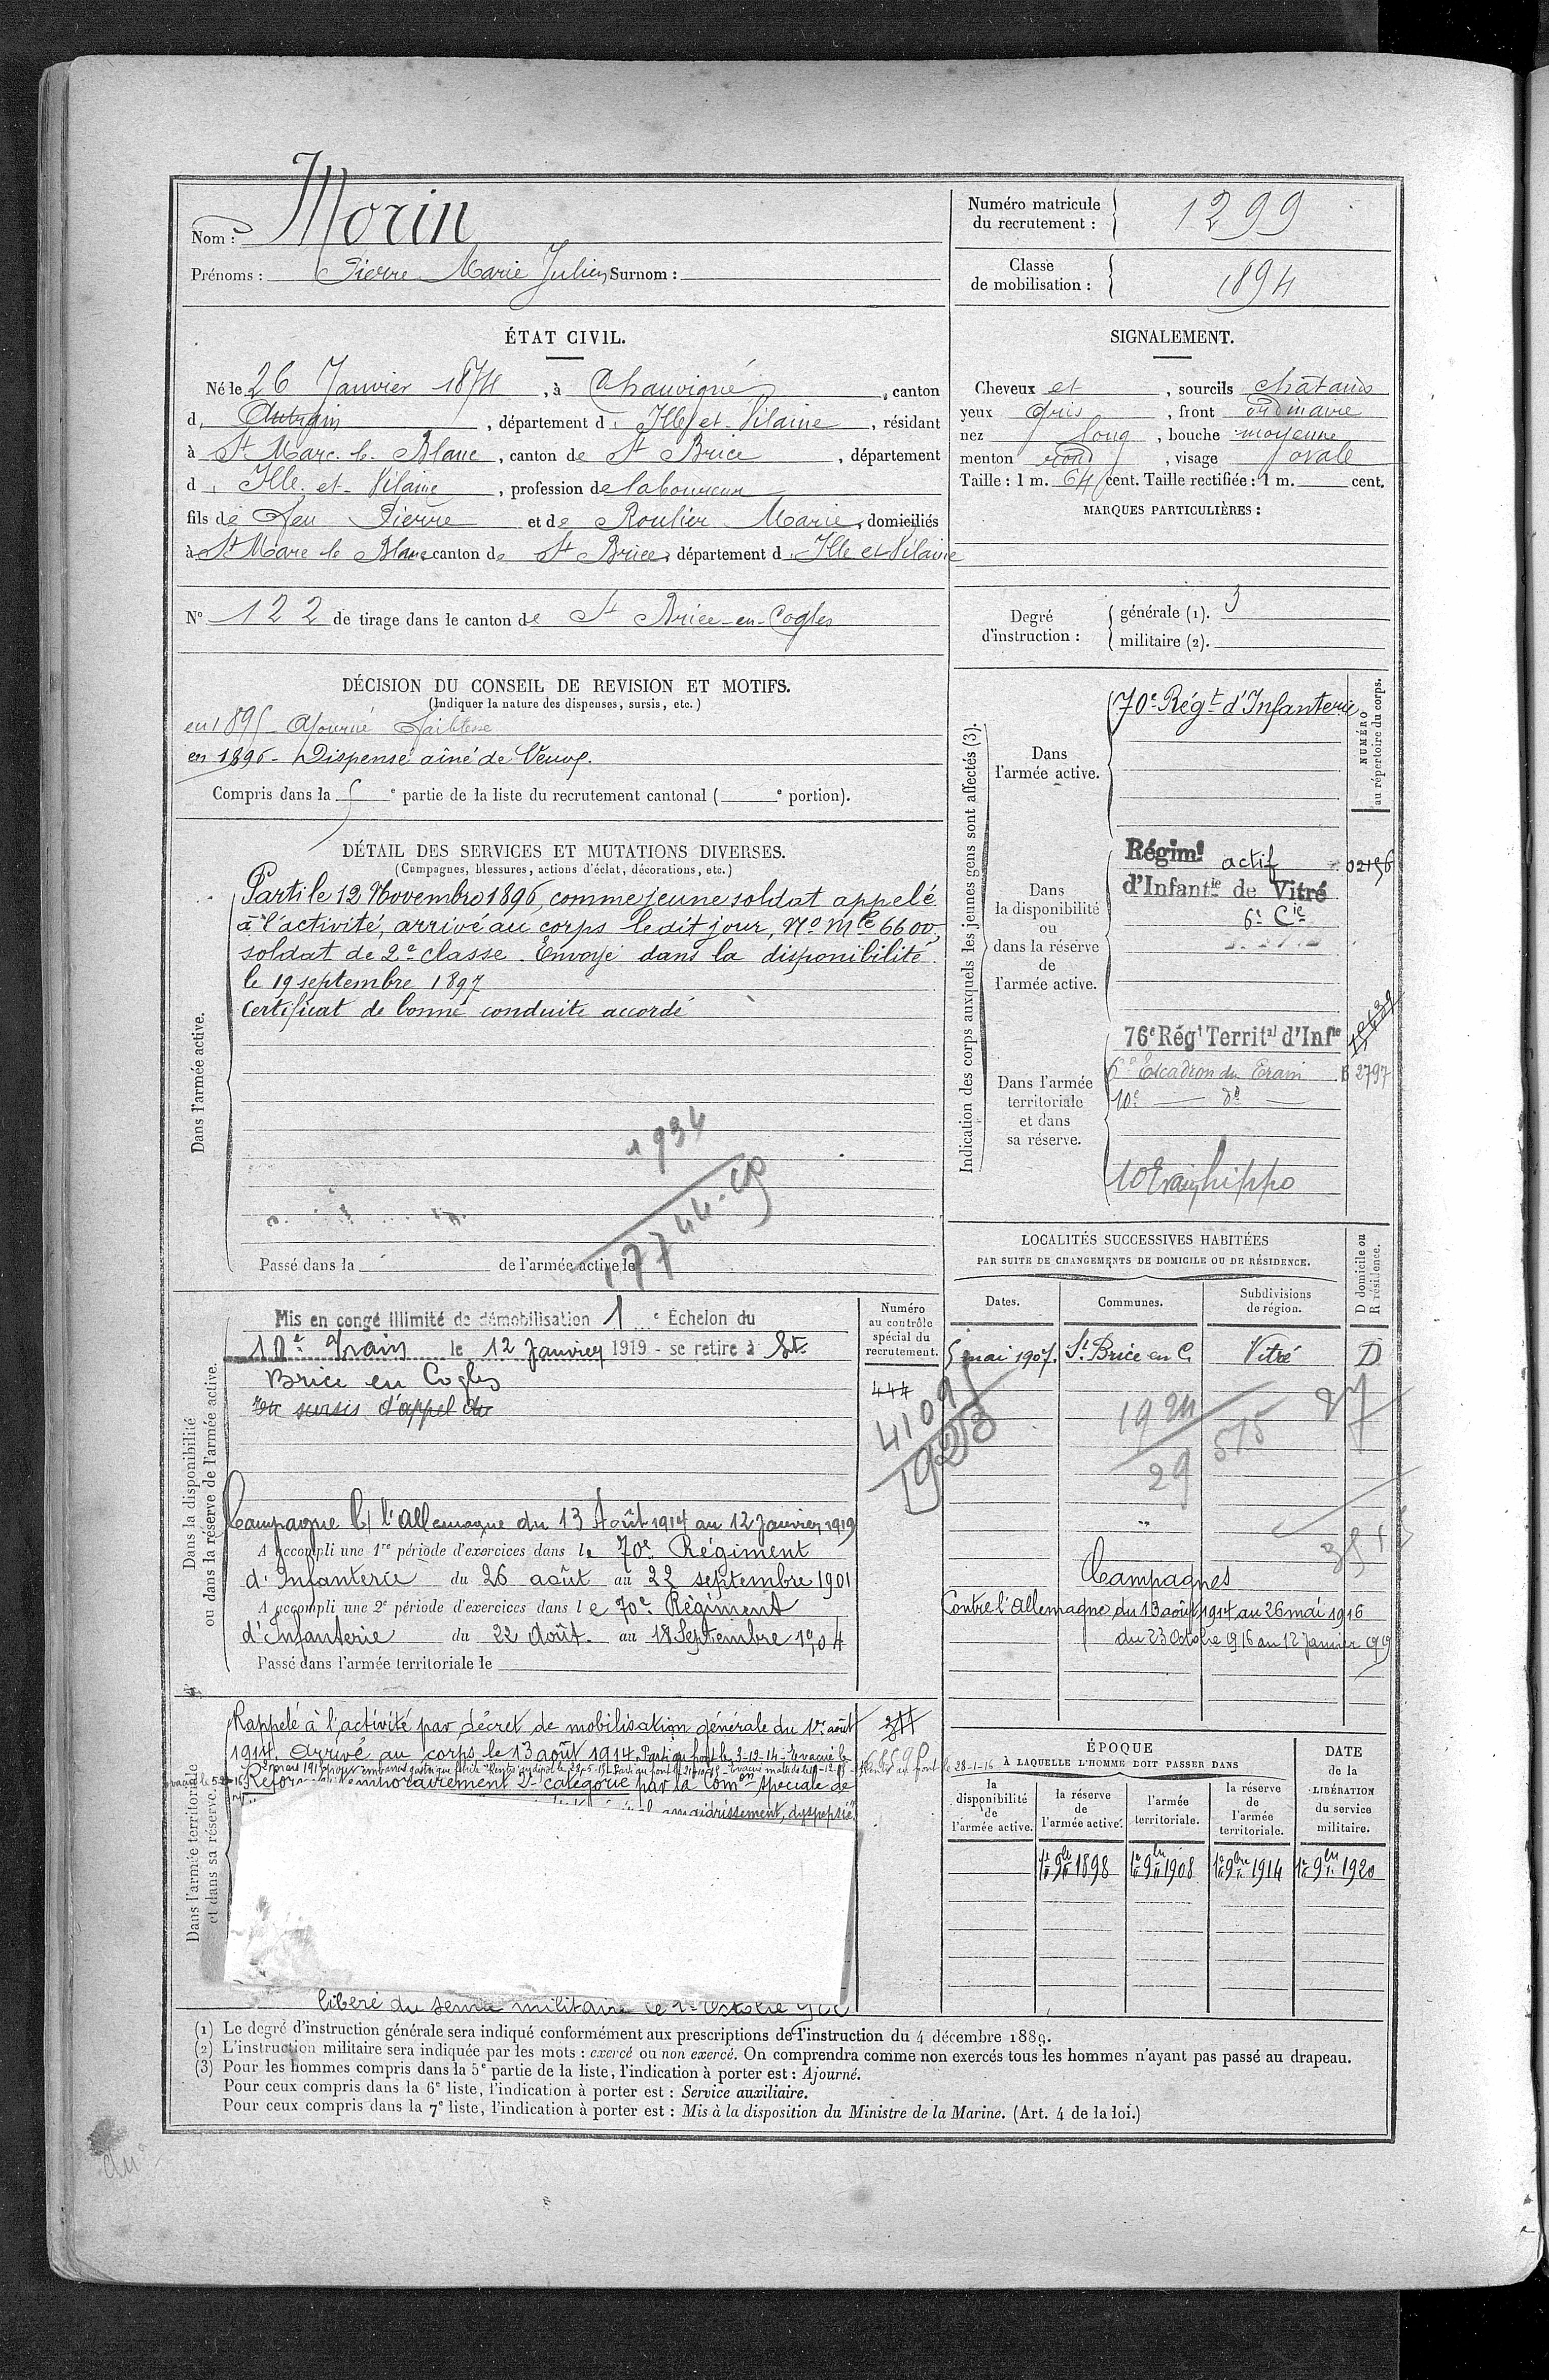 Nom : Morin
Prénoms : Pierre Marie Julien Surnom :
Numéro matricule
du recrutement : 1299
Classe
de mobilisation : 1894
ÉTAT CIVIL.
Né le 26 Janvier 1874, à Chauvigné, canton
d Antrain, département d Ille et Vilaine, résidant
à St Marc le Blanc, canton de St Brice, département
d Ille et Vilaine, profession de laboureur
fils de feu Pierre et de Roulier Marie, domiciliés
à St Marc le Blanc canton de St Brice, département d Ille et Vilaine
N° 122 de tirage dans le canton de St Brice-en-Cogles
SIGNALEMENT.
Cheveux et, sourcils châtains
yeux gris, front ordinaire
nez long, bouche moyenne
menton rond, visage ovale
Taille : 1 m. 64 cent. Taille rectifiée : 1 m. cent.
MARQUES PARTICULIÈRES :
Degré
d'instruction :
générale (1). 3
militaire (2).
DÉCISION DU CONSEIL DE REVISION ET MOTIFS.
(Indiquer la nature des dispenses, sursis, etc.)
en 1895 Ajourné faiblesse
en 1896 - Dispensé aîné de Veuve.
Compris dans la 5e partie de la liste du recrutement cantonal ( e portion).
DÉTAIL DES SERVICES ET MUTATIONS DIVERSES.
(Campagnes, blessures, actions d'éclat, décorations, etc.)
Dans l'armée active.
Parti le 12 Novembre 1896, comme jeune soldat appelé
à l'activité, arrivé au corps ledit jour, No Mle 6600,
soldat de 2e classe. Envoyé dans la disponibilité
le 19 septembre 1897
Certificat de bonne conduite accordé
1934
1744-49
Passé dans la de l'armée active le
Indication des corps auxquels les jeunes gens sont affectés (3).
NUMÉRO
au répertoire du corps.
Dans
l'armée active.
70e Régt d'Infanterie
Dans
la disponibilité
ou
dans la réserve
de
l'armée active.
Régimt actif 02156
d'Infantie de Vitré
6e Cie
Dans l'armée
territoriale
et dans
sa réserve.
76e Régt Territal d'Infie
6e Escadron du Train 2797
10e — do —
10 Train hippo
LOCALITÉS SUCCESSIVES HABITÉES
PAR SUITE DE CHANGEMENTS DE DOMICILE OU DE RÉSIDENCE.
Dates. Communes. Subdivisions
de région. D domicile ou
R résidence.
5 mai 1907. St Brice en C. Vitré D
1924
29
515
27
Campagnes
Contre l'Allemagne du 13 août 1914 au 26 mai 1916
du 23 Octobre 1916 au 12 Janvier 1919
Dans la disponibilité
ou dans la réserve de l'armée active.
Numéro
au contrôle
spécial du
recrutement.
444
4109
1928
Mis en congé illimité de démobilisation 1e Échelon du
10e Train le 12 Janvier 1919 - se retire à St
Brice en Cogles
en sursis d'appel du
Campagne C/ l'Allemagne du 13 Août 1914 au 12 Janvier 1919
A accompli une 1re période d'exercices dans le 70e Régiment
d'Infanterie du 26 août au 22 septembre 1901
A accompli une 2e période d'exercices dans le 70e Régiment
d'Infanterie du 22 Août au 18 Septembre 1904
Passé dans l'armée territoriale le
Dans l'armée territoriale
et dans sa réserve.
Rappelé à l'activité par décret de mobilisation générale du 1er août
1914. Arrivé au corps le 13 août 1914. Parti au front le 3-12-14 - Evacué le
2 mars 1915 pour embarras gastrique fébrile
front le 28-1-16
temporairement 2e catégorie par la Comon spéciale de
amaigrissement, dyspepsie
libéré du service militaire le 1er Octobre
ÉPOQUE
À LAQUELLE L'HOMME DOIT PASSER DANS
DATE
de la
LIBÉRATION
du service
militaire.
la
disponibilité
de
l'armée active.
la réserve
de
l'armée active.
l'armée
territoriale.
la réserve
de
l'armée
territoriale.
1er 9bre 1898 1er 9bre 1908 1er 9bre 1914 1er 9bre 1920
(1) Le degré d'instruction générale sera indiqué conformément aux prescriptions de l'instruction du 4 décembre 1889.
(2) L'instruction militaire sera indiquée par les mots : exercé ou non exercé. On comprendra comme non exercés tous les hommes n'ayant pas passé au drapeau.
(3) Pour les hommes compris dans la 5e partie de la liste, l'indication à porter est : Ajourné.
Pour ceux compris dans la 6e liste, l'indication à porter est : Service auxiliaire.
Pour ceux compris dans la 7e liste, l'indication à porter est : Mis à la disposition du Ministre de la Marine. (Art. 4 de la loi.)